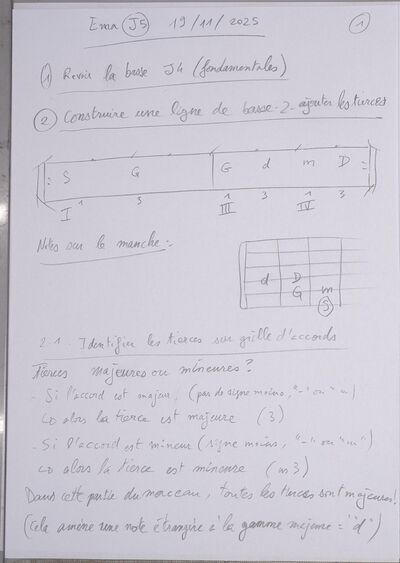 Ema J5 19/11/2025 1
1 Revoir la basse J4 (fondamentales)
2 Construire une ligne de basse-2-ajouter les tierces
S G G d m D
1 3 1 3 1 3
I III IV
Notes sur le manche :
d D
G m
S
2-1- Identifier les tierces sur grille d'accords
Tierces majeures ou mineures ?
- Si l'accord est majeur, (pas de signe moins, "-" ou "m")
↳ alors la tierce est majeure (3)
- Si l'accord est mineur (signe moins, "-" ou "m")
↳ alors la tierce est mineure (m3)
Dans cette partie du morceau, toutes les tierces sont majeures !
(Cela amène une note étrangère à la gamme majeure = "d")